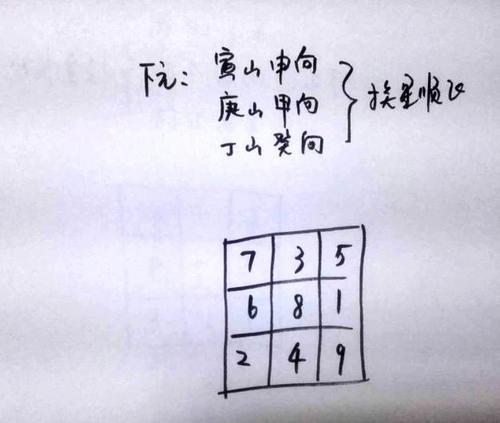 下元: 寅山申向
庚山甲向
丁山癸向
挨星顺飞
7 3 5
6 8 1
2 4 9